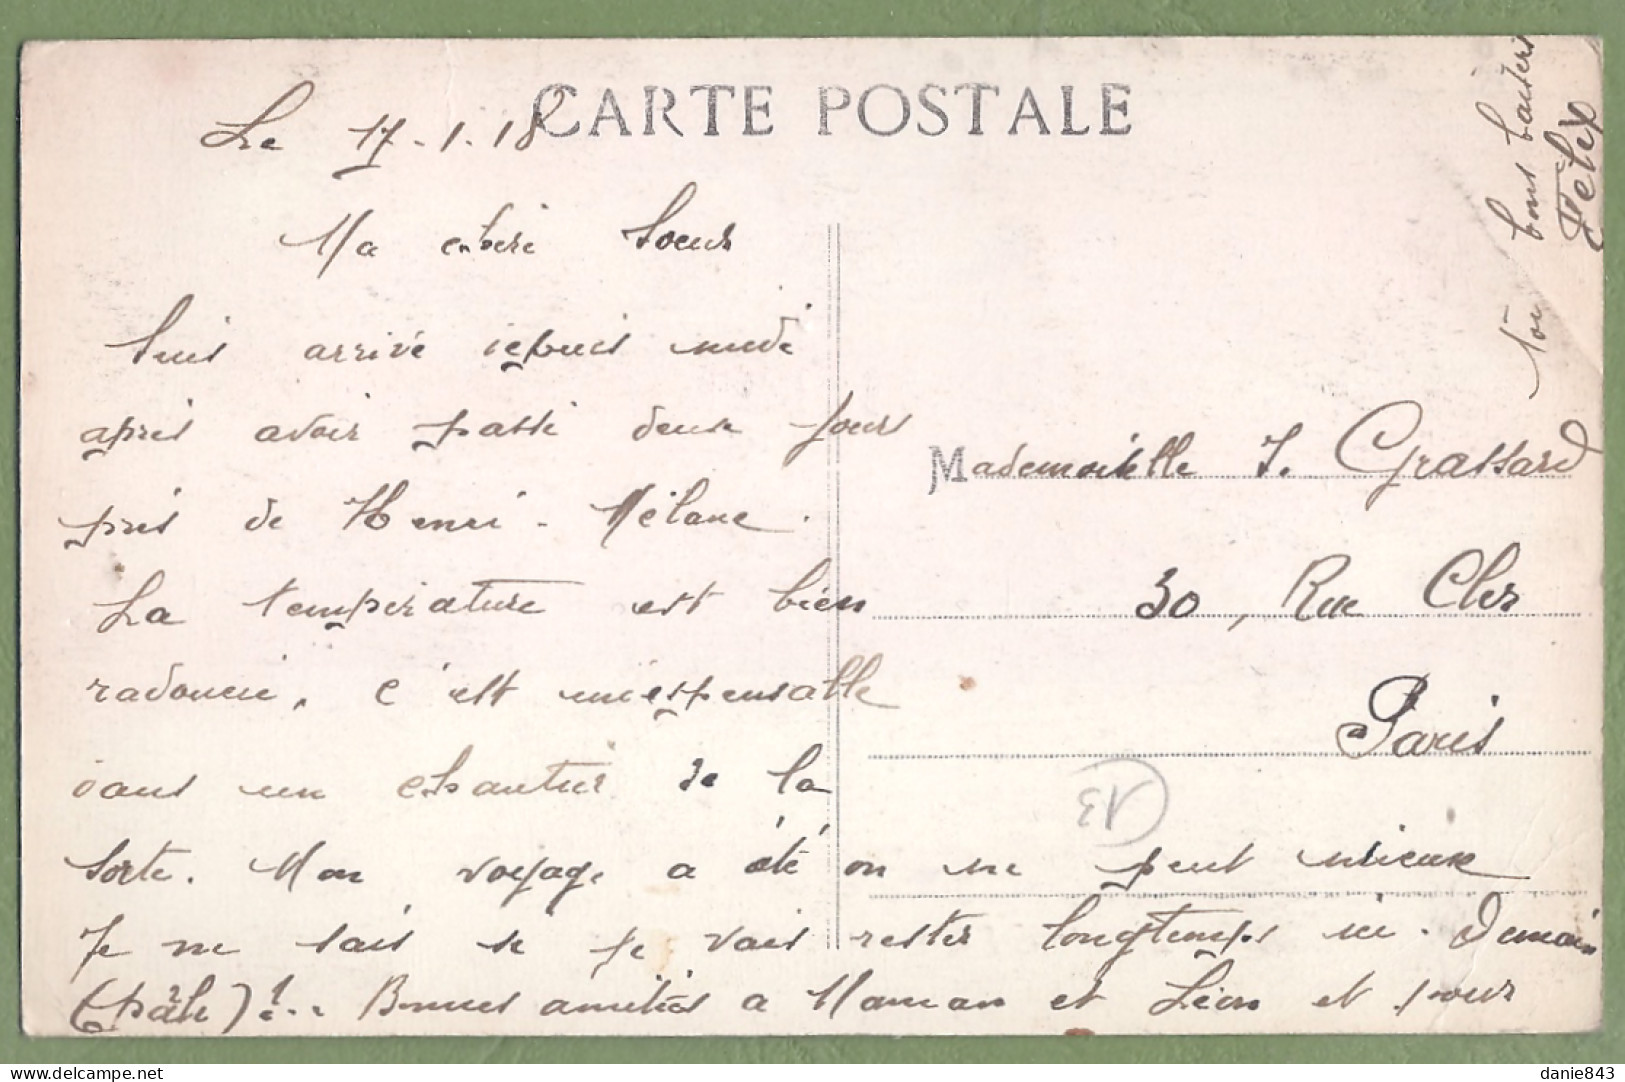 CARTE POSTALE
Le 17-1-18
Ma chère Soeur
Suis arrivé depuis midi
après avoir passé deux jours
près de Henri - Mélane.
La température est bien
radoucie, c'est indispensable
dans un chantier de la
sorte. Mon voyage a été on ne peut mieux
Je ne sais si je vais rester longtemps ici. Demain
Bonnes amitiés a Maman et Léon et pour
toi bons baisers
Félix
Mademoiselle J. Grassard
30, Rue Cler
Paris
13
danie843